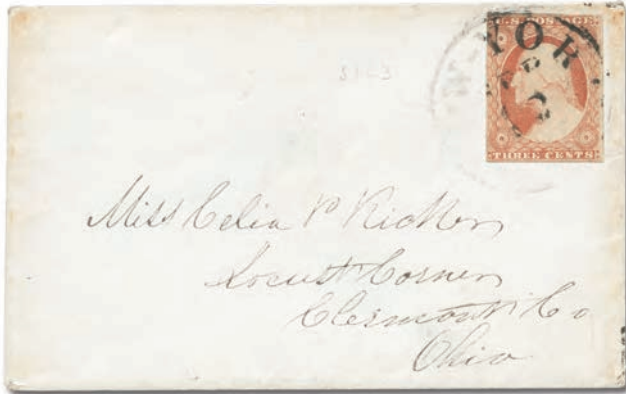 U.S. POSTAGE
W-YOR
2
THREE CENTS
Miss Celia P Ricker
Locust Corner
Clermont Co
Ohio